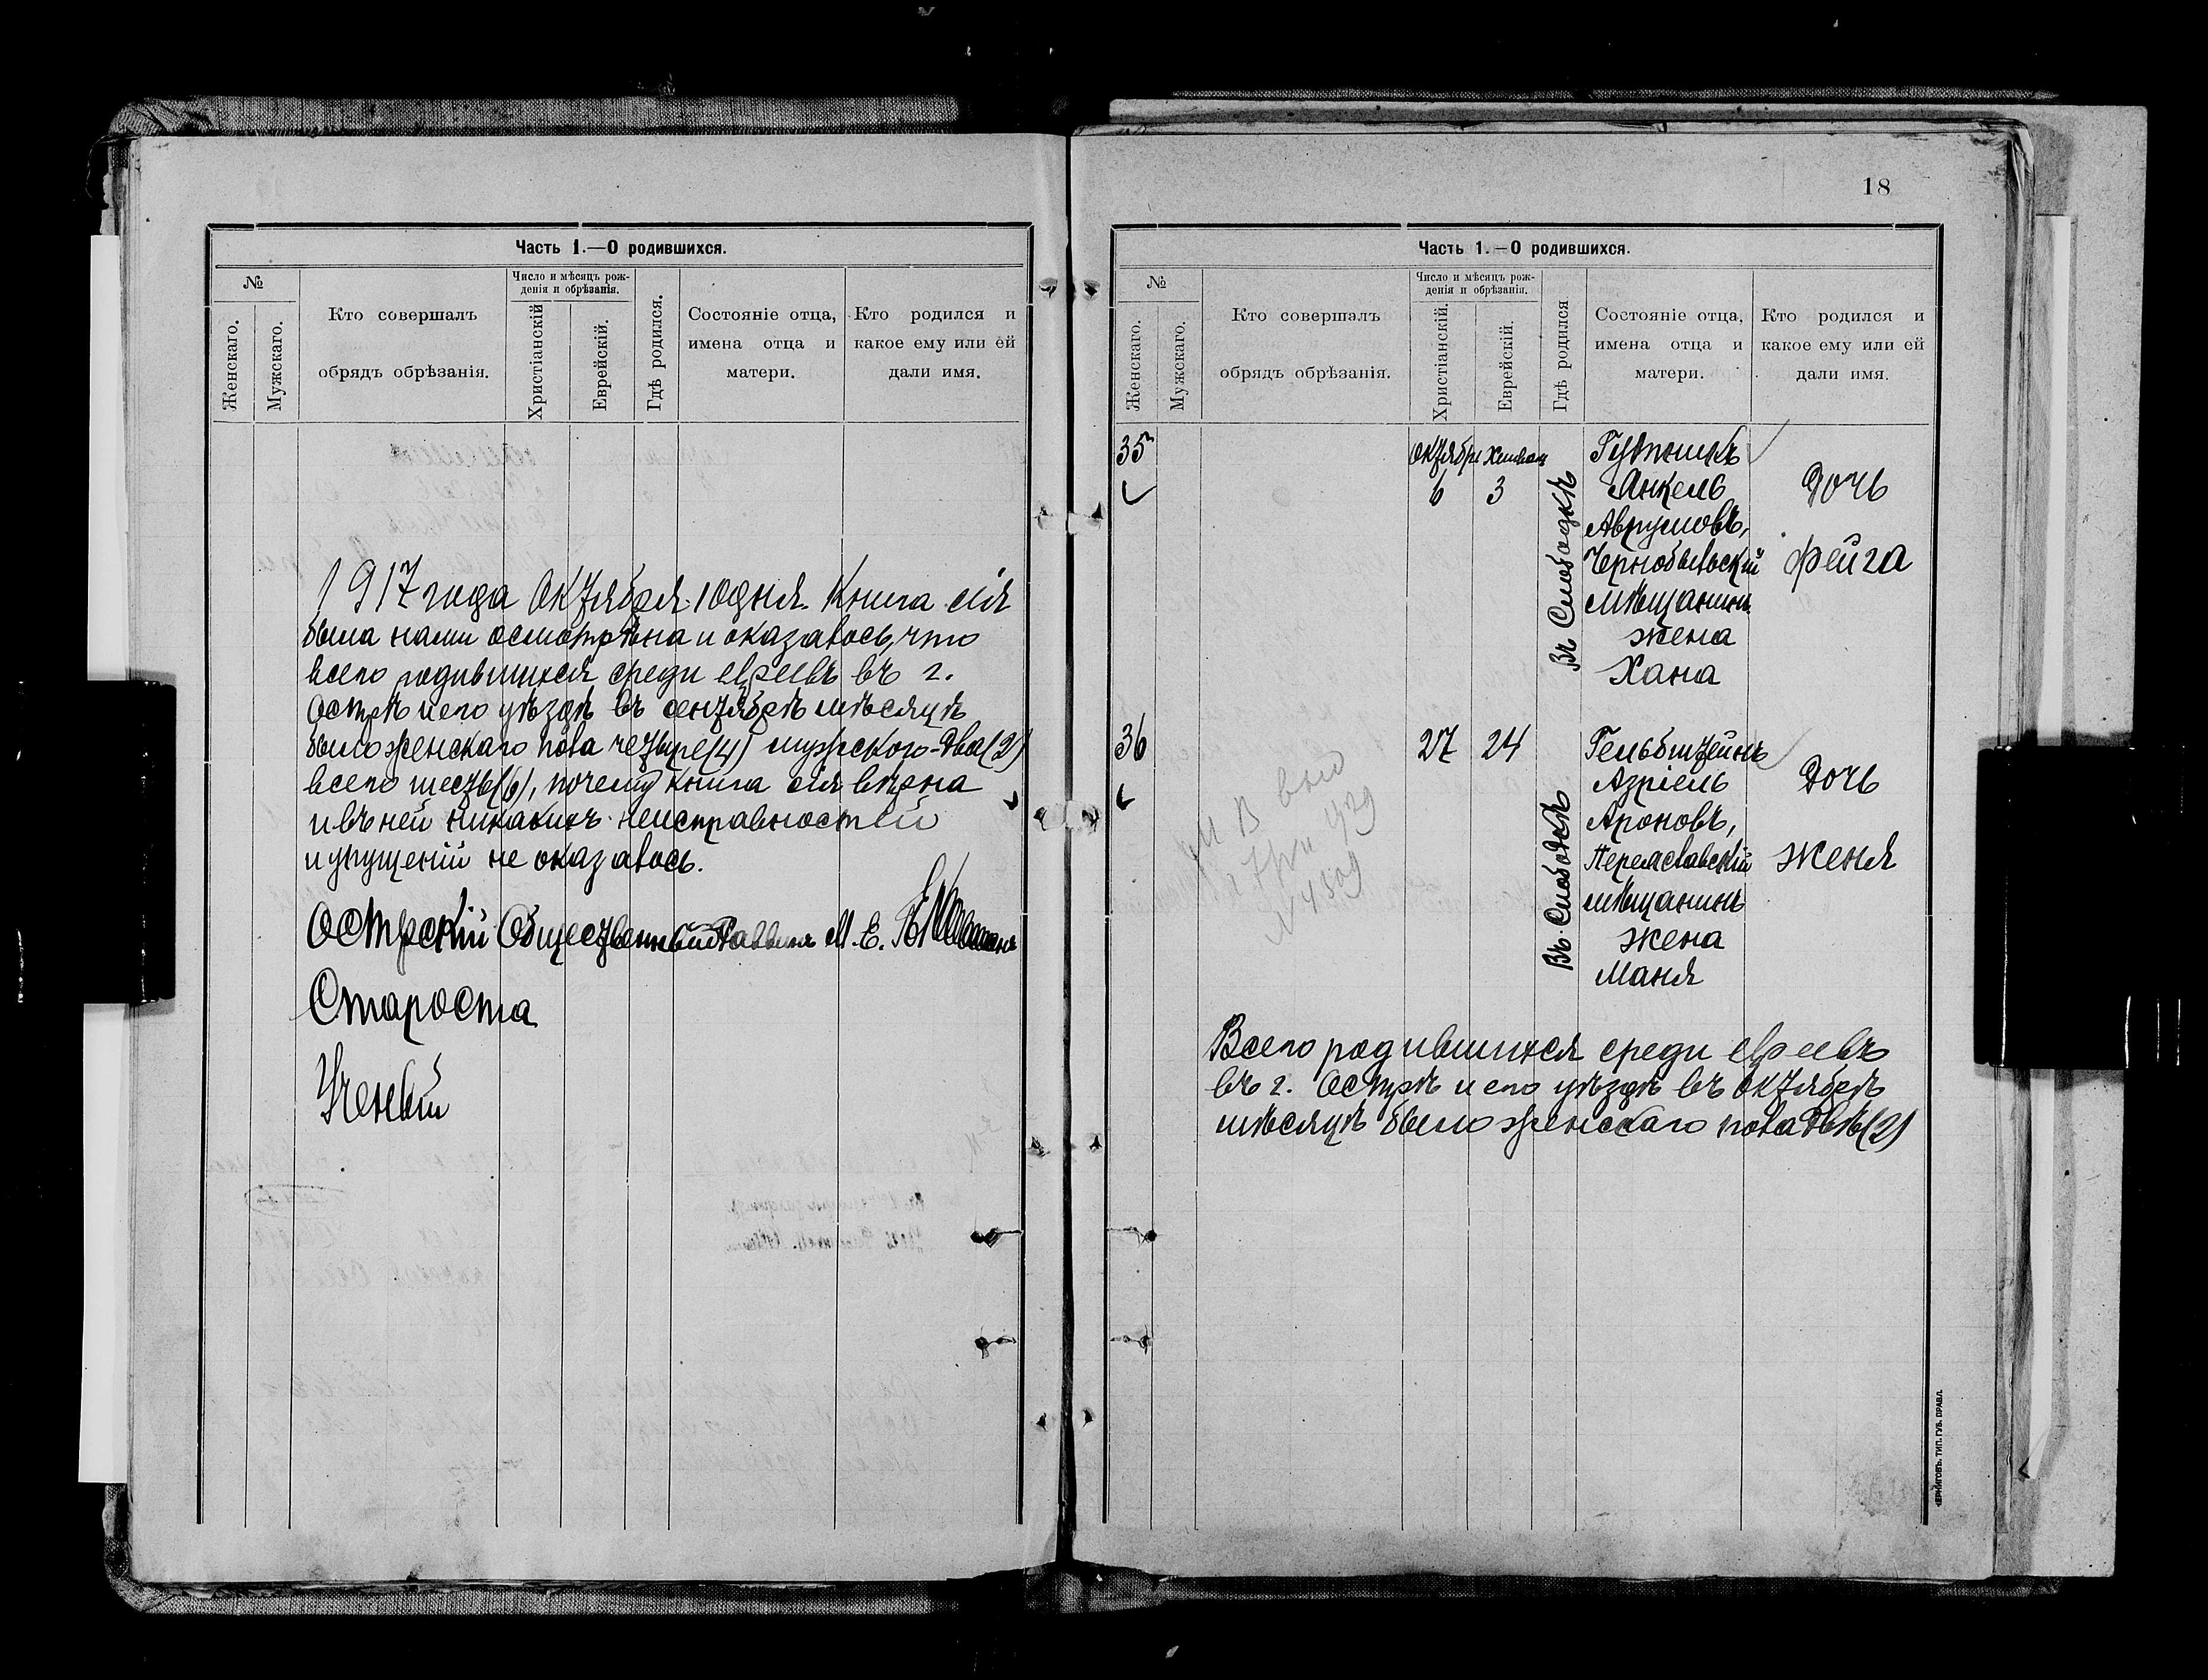 Часть 1.—О родившихся.
№
Женскаго.
Мужскаго.
Кто совершалъ
обрядъ обрѣзанія.
Число и мѣсяцъ рож-
денія и обрѣзанія.
Христіанскій
Еврейскій.
Гдѣ родился.
Состояніе отца,
имена отца и
матери.
Кто родился и
какое ему или ей
дали имя.
1917 года Октября 10 дня. Книга сія
была нами осмотрѣна и оказалось, что
всего родившихся среди евреевъ въ г.
Острѣ и его уѣздѣ въ сентябрѣ мѣсяцѣ
было женскаго пола четыре (4) мужского - два (2)
всего шесть (6), почему книга сія вѣрна
и въ ней никакихъ неисправностей
и упущеній не оказалось.
Остерскій Общественный Раввинъ М. Е.
Староста
Ученый
18
Часть 1.—О родившихся.
№
Женскаго.
Мужскаго.
Кто совершалъ
обрядъ обрѣзанія.
Число и мѣсяцъ рож-
денія и обрѣзанія.
Христіанскій.
Еврейскій.
Гдѣ родился
Состояніе отца,
имена отца и
матери.
Кто родился и
какое ему или ей
дали имя.
35
Октября
6
3
Въ Слободкѣ
Анкель
Аврумовъ,
Чернобыльскій
мѣщанинъ
жена
Хана
Дочь
Фейга
36
27
24
Въ Слободкѣ
Гельбштейнъ
Азріель
Ароновъ,
Переяславскій
мѣщанинъ
жена
Маня
Дочь
Женя
Всего родившихся среди евреевъ
въ г. Острѣ и его уѣздѣ въ октябрѣ
мѣсяцѣ было женскаго пола двѣ (2)
ЧЕРНИГОВЪ. ТИП. ГУБ. ПРАВЛ.